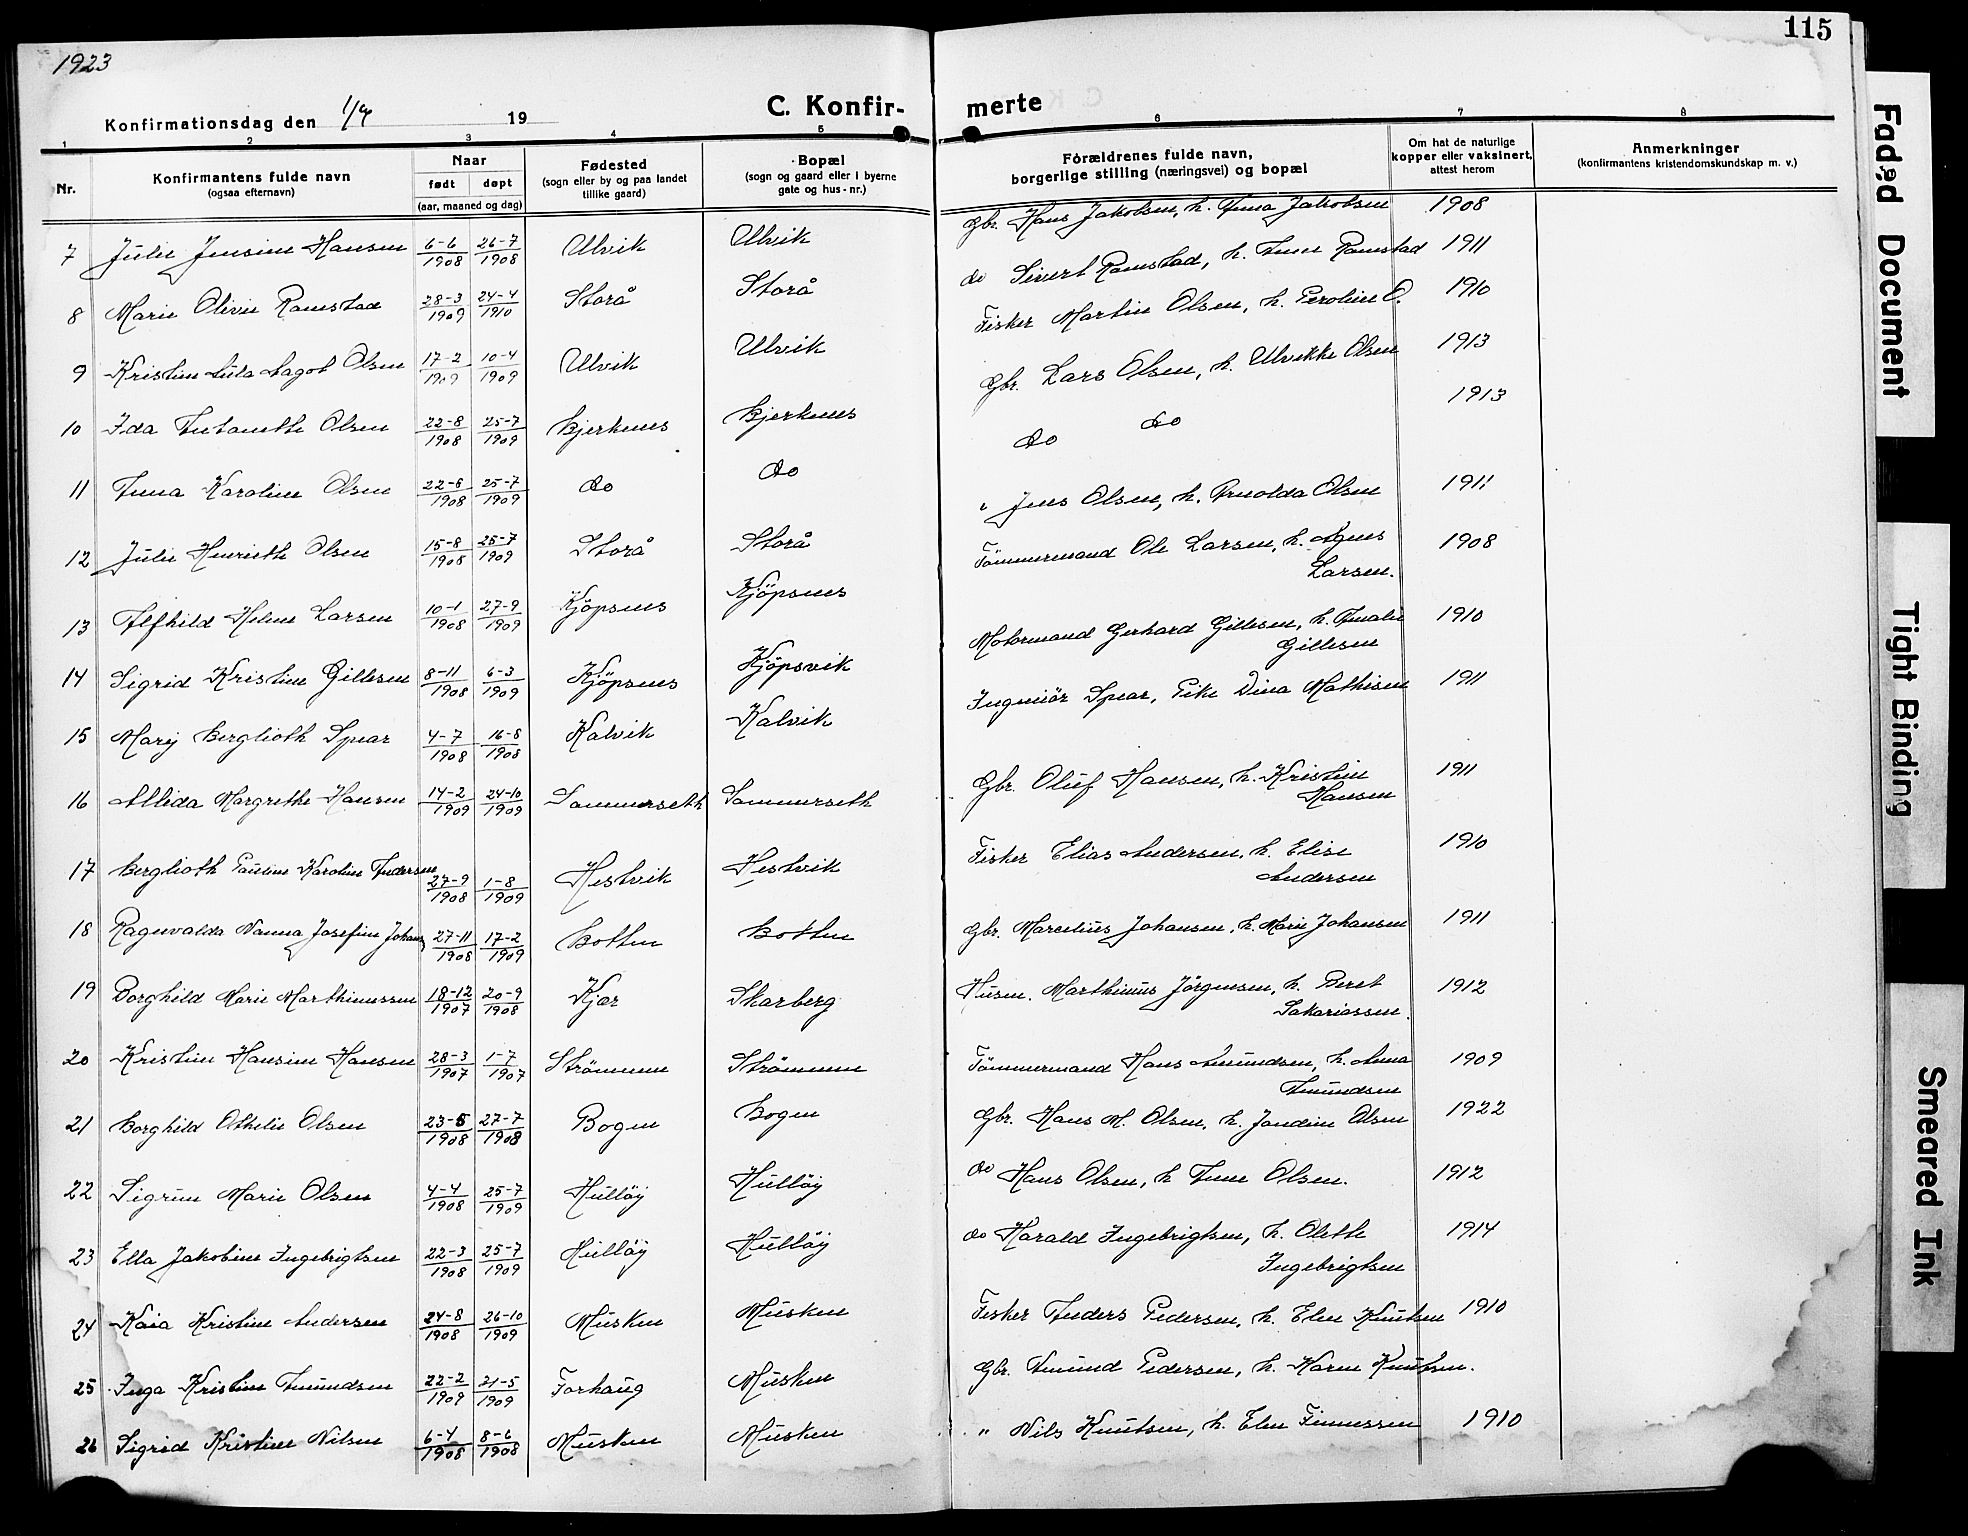 1923
115
Konfirmationsdag den 1/7 19
C. Konfir-
merte
1 2 3 4 5 6 7 8
Nr.
Konfirmantens fulde navn
(ogsaa efternavn)
Naar
født døpt
(aar, maaned og dag)
Fødested
(sogn eller by og paa landet
tillike gaard)
Bopæl
(sogn og gaard eller i byerne
gate og hus-nr.)
Forældrenes fulde navn,
borgerlige stilling (næringsvei) og bopæl
Om hat de naturlige
kopper eller vaksinert,
attest herom
Anmerkninger
(konfirmantens kristendomskundskap m. v.)
7 Julie Jensine Hansen 6-6 1908 26-7 1908 Ulvik Ulvik Gbr. Hans Jakobsen, h. Anna Jakobsen 1908
8 Marie Olivie Ramstad 28-3 1909 24-4 1910 Storå Storå do Sivert Ramstad, h. Anne Ramstad 1911
9 Kristine Aula Dagot Olsen 17-2 1909 10-4 1909 Ulvik Ulvik Fisker Martin Olsen, h. Peroline O. 1910
10 Ida Antonette Olsen 22-8 1908 25-7 1909 Bjerknes Bjerknes Gbr. Lars Olsen, h. Ulvikke Olsen 1913
11 Anna Karoline Olsen 22-8 1908 25-7 1909 do do do do 1913
12 Julie Henriette Olsen 15-8 1908 25-7 1909 Storå Storå " Jens Olsen, h. Arnolda Olsen 1911
13 Alfhild Helene Larsen 10-1 1908 27-9 1909 Kjöpsnes Kjöpsnes Tömmermand Ole Larsen, h. Agnes
Larsen. 1908
14 Sigrid Kristine Gillesen 8-11 1908 6-3 1909 Kjöpsnes Kjöpsvik Motormand Gerhard Gillesen, h. Amalie
Gillesen 1910
15 Mary Berglioth Spear 4-7 1908 16-8 1908 Kalvik Kalvik Ingeniör Spear, Pike Dina Mathisen 1911
16 Allida Margrethe Hansen 14-2 1909 24-10 1909 Sommerseth Sommerseth Gbr. Oluf Hansen, h. Kristine
Hansen 1911
17 Berglioth Pauline Karoline Andersen 27-9 1908 1-8 1909 Hestvik Hestvik Fisker Elias Andersen, h. Elise
Andersen 1910
18 Ragnvalda Nanna Josefine Johans 27-11 1908 17-2 1909 Botten Botten Gbr. Marcelius Johansen, h. Marie Johansen 1911
19 Borghild Marie Marthinussen 18-12 1907 20-9 1908 Kjar Skarberg Husm. Marthinus Jörgensen, h. Beret
Sakariassen. 1912
20 Kristine Hansine Hansen 28-3 1907 1-7 1907 Strömmen Strömmen Tömmermand Hans Amundsen, h. Anna
Amundsen 1909
21 Borghild Othelie Olsen 23-5 1908 27-7 1908 Bogen Bogen Gbr. Hans M. Olsen, h. Jondine Olsen 1922
22 Sigrun Marie Olsen 4-4 1908 25-7 1909 Hulløy Hulløy do Hans Olsen, h Anne Olsen. 1912
23 Ella Jakobine Ingebrigtsen 22-3 1908 25-7 1909 Hulløy Hulløy do Harald Ingebrigtsen, h. Olette
Ingebrigtsen 1914
24 Kaia Kristine Andersen 24-8 1908 26-10 1909 Musken Musken Fisker Anders Pedersen, h. Elen Knutsen 1910
25 Inga Kristine Amundsen 22-2 1909 21-5 1909 Forhaug Musken Gbr. Amund Pedersen, h. Karen Knutsen.
26 Sigrid Kristine Nilsen 6-4 1908 8-6 1908 Musken Musken " Nils Knutsen, h. Elen Finnessen 1910
Faded Document
Tight Binding
Smeared Ink